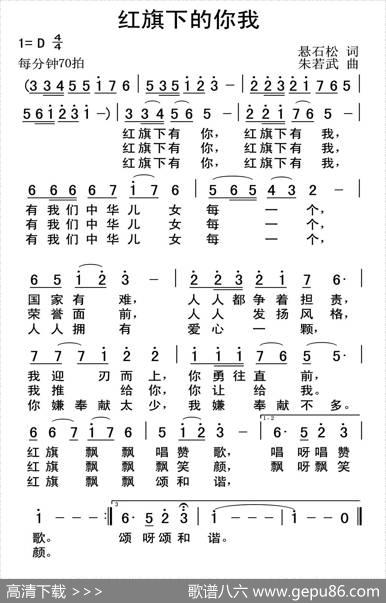 红旗下的你我
1=D 4/4
悬石松 词
每分钟70拍
朱若武 曲
(3 3 4 5 5 1 7 6 | 5 3 5 1 2 3 · | 2 2 3 2 1 7 6 |
5 6 1 2 3 1 -) | 3 3 4 5 6 5 - | 2 2 1 7 6 5 - |
红旗下有 你, 红旗下有 我,
红旗下有 你, 红旗下有 我,
红旗下有 你, 红旗下有 我,
6 6 6 6 7 6 1 7 6 | 5 6 5 4 3 2 - |
有我们中华儿 女 每 一 个,
有我们中华儿 女 每 一 个,
有我们中华儿 女 每 一 个,
6 5 1 2 3 - | 2 2 3 2 1 7 6· |
国家有 难, 人人都争着担责,
荣誉面 前, 人人 发扬风格,
人人拥 有 爱心 一 颗,
7 7 7 1 2 2 | 1 1 1 7 6 5 5· |
我迎 刃而上, 你勇往直 前,
我推 给你, 你让 给我。
你嫌奉献太少, 我嫌 奉献不多。
6 6 7 1 7 6 | 5 1 2 3 - | 1-2 6· 5 2 3 |
红旗 飘飘唱赞 歌, 唱呀唱赞
红旗 飘飘飘笑 颜, 飘呀飘笑
红旗 飘飘颂和 谐,
1 - - - :| 3 6· 5 2 3 | 1 - - - ‖
歌。 颂呀颂和 谐。
颜。
高清下载 > >>
歌谱八六 www.gepu86.com